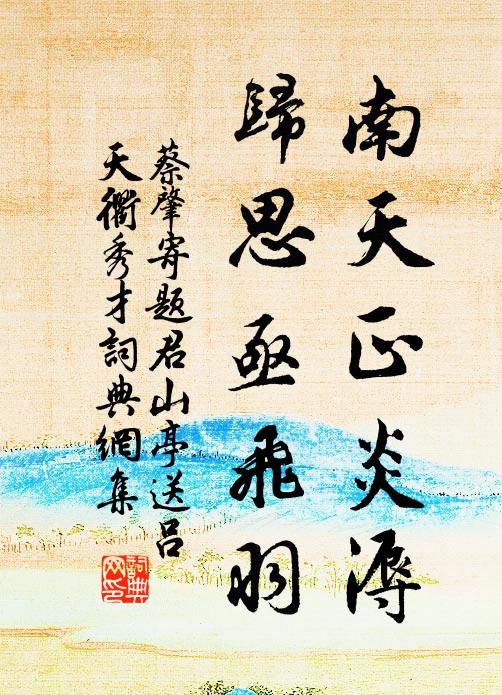 南天正炎溽
歸思亟飛羽
蔡肇寄題君山亭送呂
天衢秀才詞典網集
詞典
网印